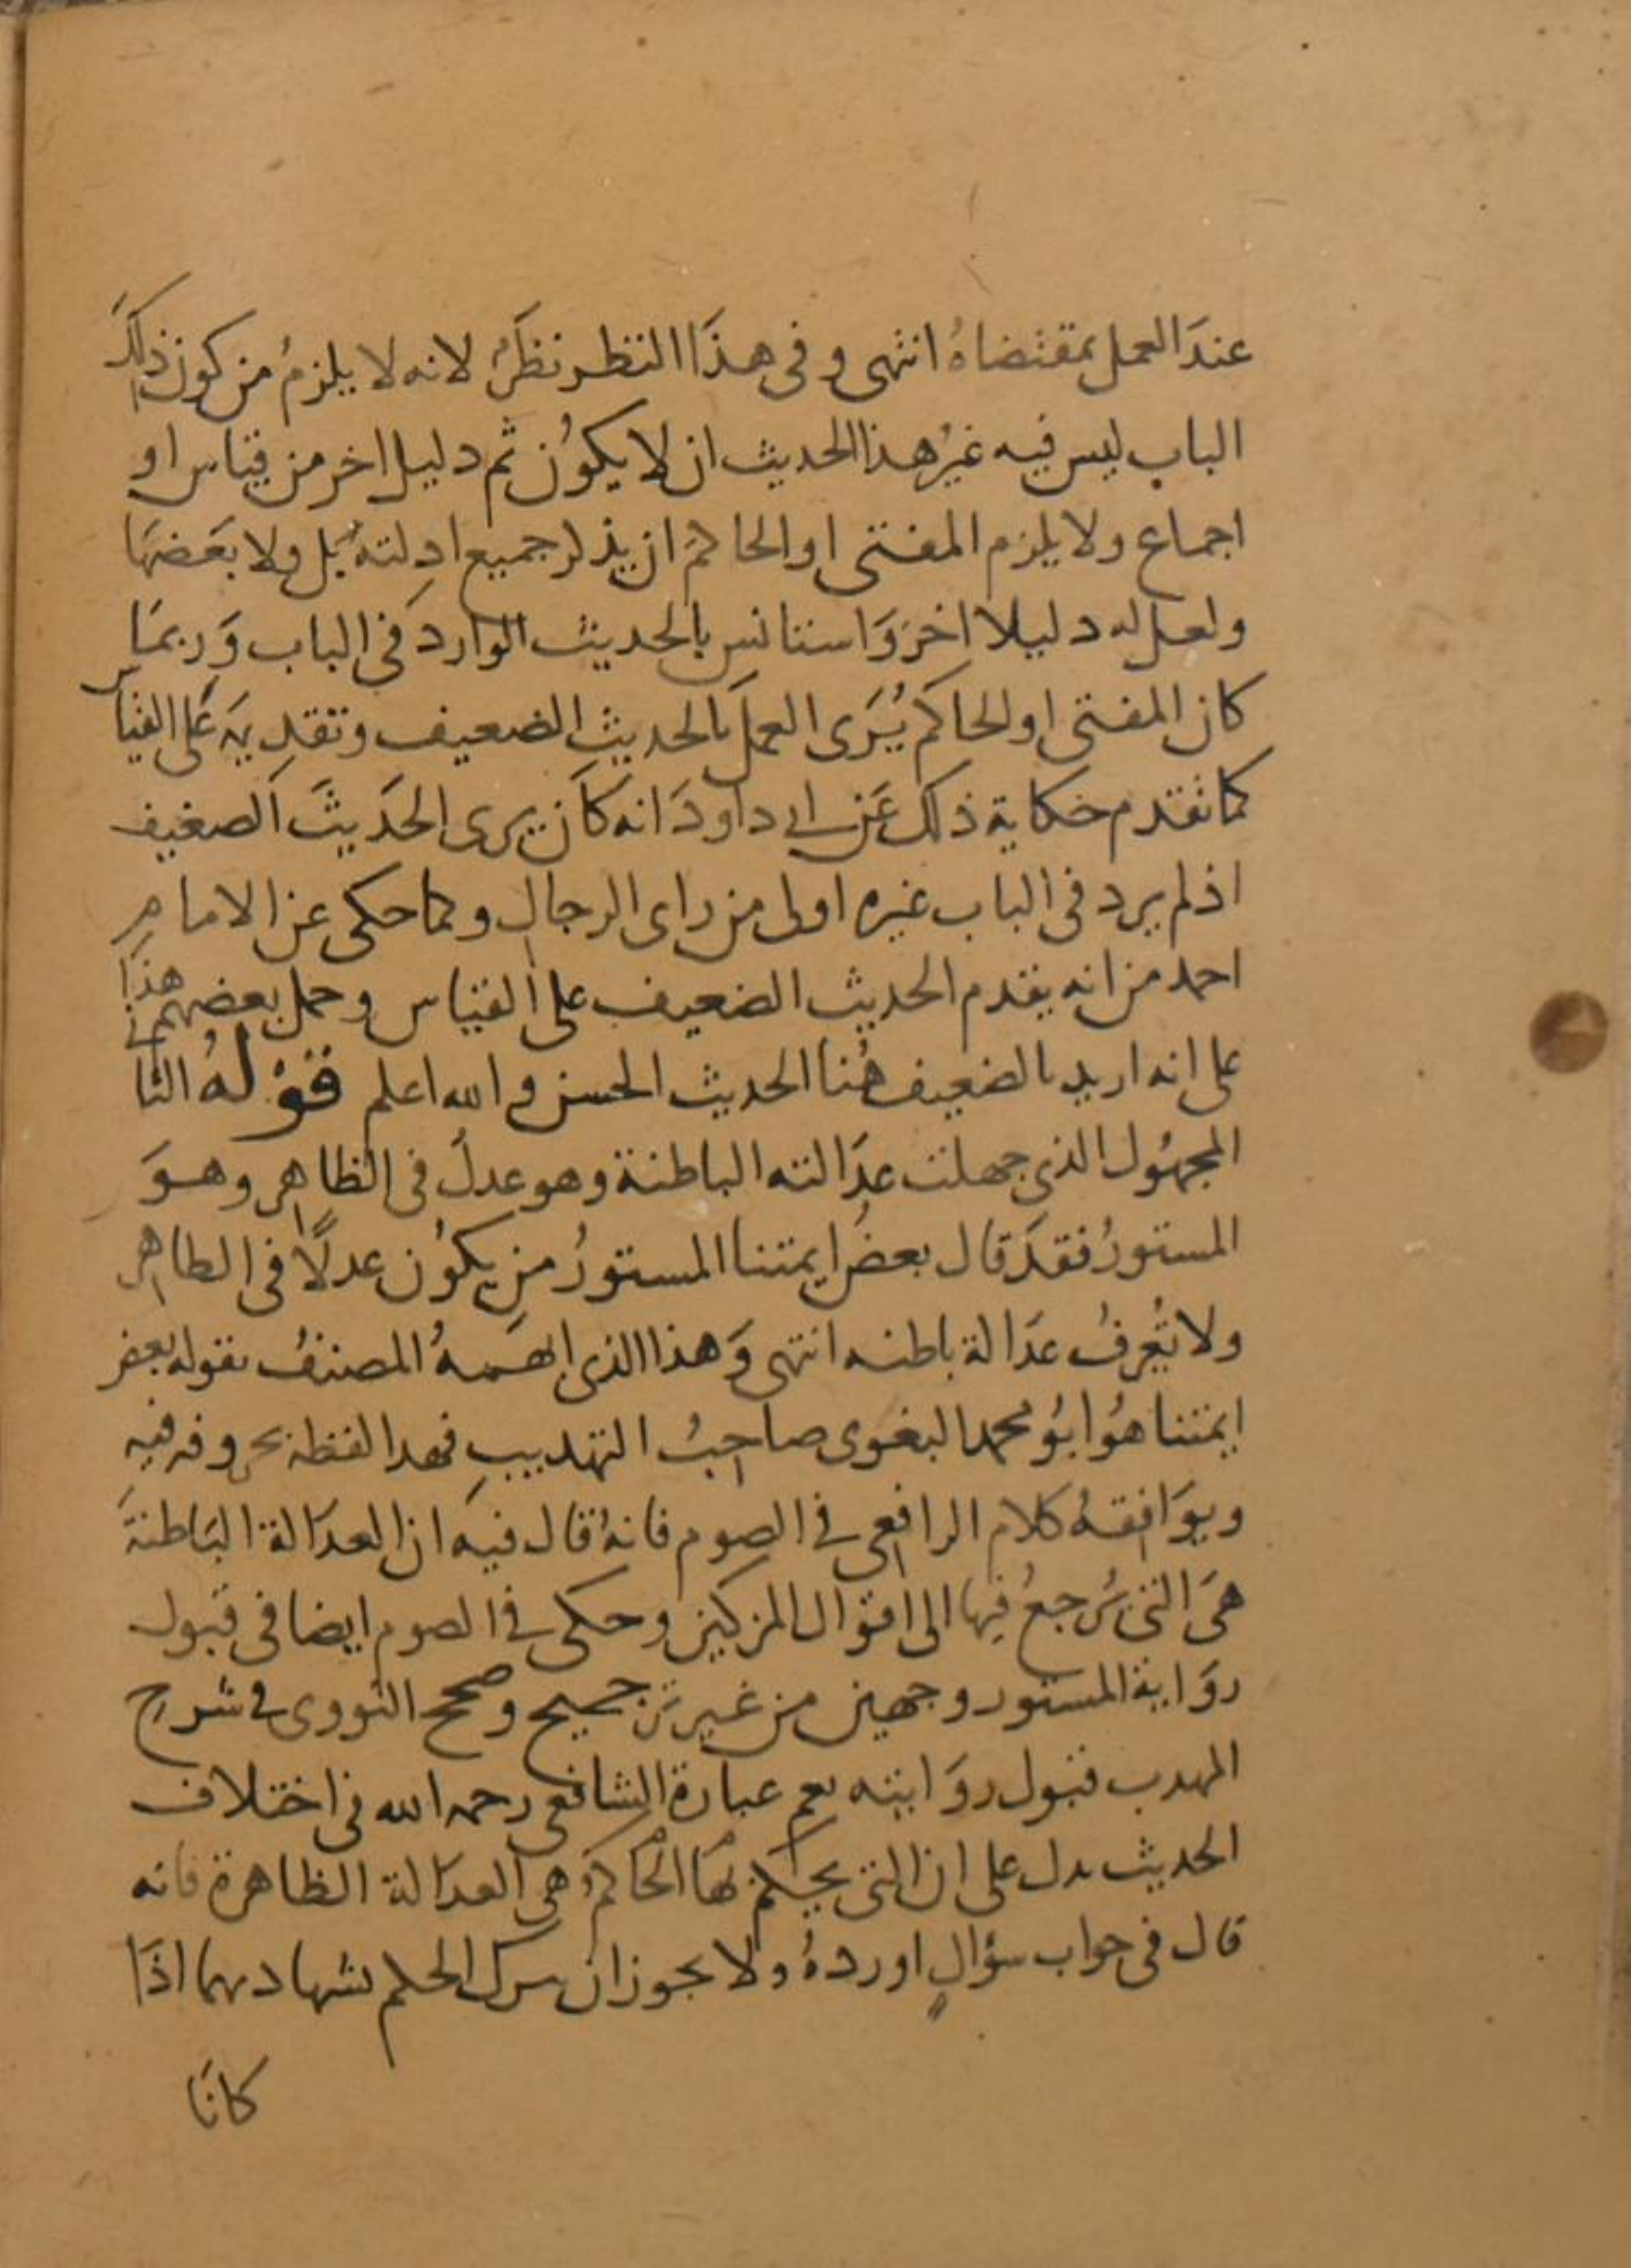 عندَ العمل بمقتضاهُ انتهى وفى هذَا النظر نظَرٌ لانه لا يلزمُ من كون ذلكَ
الباب ليس فيه غيرُ هذا الحديث ان لا يكوُن ثم دليل اخر من قياس او
اجماع ولا يلزم المفتى او الحاكم ان يذكر جميع ادلته بل ولا بعَضهَا
ولعل له دليلا اخرَ وَاستانس بالحديث الوارد فى الباب وَربمَا
كان المفتى او الحاكم يُرَى العمل بالحديث الضعيف وتقديمَه عَلى القياس
كما تقدم حكاية ذلك عَن ابى داودَ انه كاَن يرى الحَديثَ الضعيف
اذ لم يرد فى الباب غيره اولى من راى الرجال وكما حكى عن الامام
احمد من انه يقدم الحديث الضعيف على القياس وحمل بعضهم هذَا
على انه اريد بالضعيف هُنا الحديث الحسن والله اعلم قوْلهُ الثانى
المجهُول الذى جهلت عدَالته الباطنة وهو عدلٌ فى الظاهر وهوَ
المستورُ فقدَ قال بعضُ ايمتنا المستورُ من يكوُن عدلًا فى الطاهر
ولا تُعرفُ عدَالة باطنه انتهى وَهذا الذى ابهمهُ المصنفُ بقوله بعض
ايمتنا هُو ابوُ محمد البغوى صاحبُ التهديب فهدا لفظه بحروفه فيه
ويوَافقهُ كلام الرافعى فى الصوم فانهُ قال فيه ان العدَالة البَاطنةَ
هىَ التى يُرجعُ فيها الى اقوال المزكين وحكى فى الصوم ايضا فى قبول
روَاية المستور وجهين من غير ترجيح وصحح النووى فى شرح
المهدب قبول روَايته نعم عبارة الشافعى رحمه الله فى اختلاف
الحديث تدل على ان التى يحكم بهَا الحاكم هى العدَالة الظاهرة فانه
قال فى جواب سؤالٍ اوردهُ ولا يجوز ان يترك الحكم بشهادتهما اذَا
كانَا